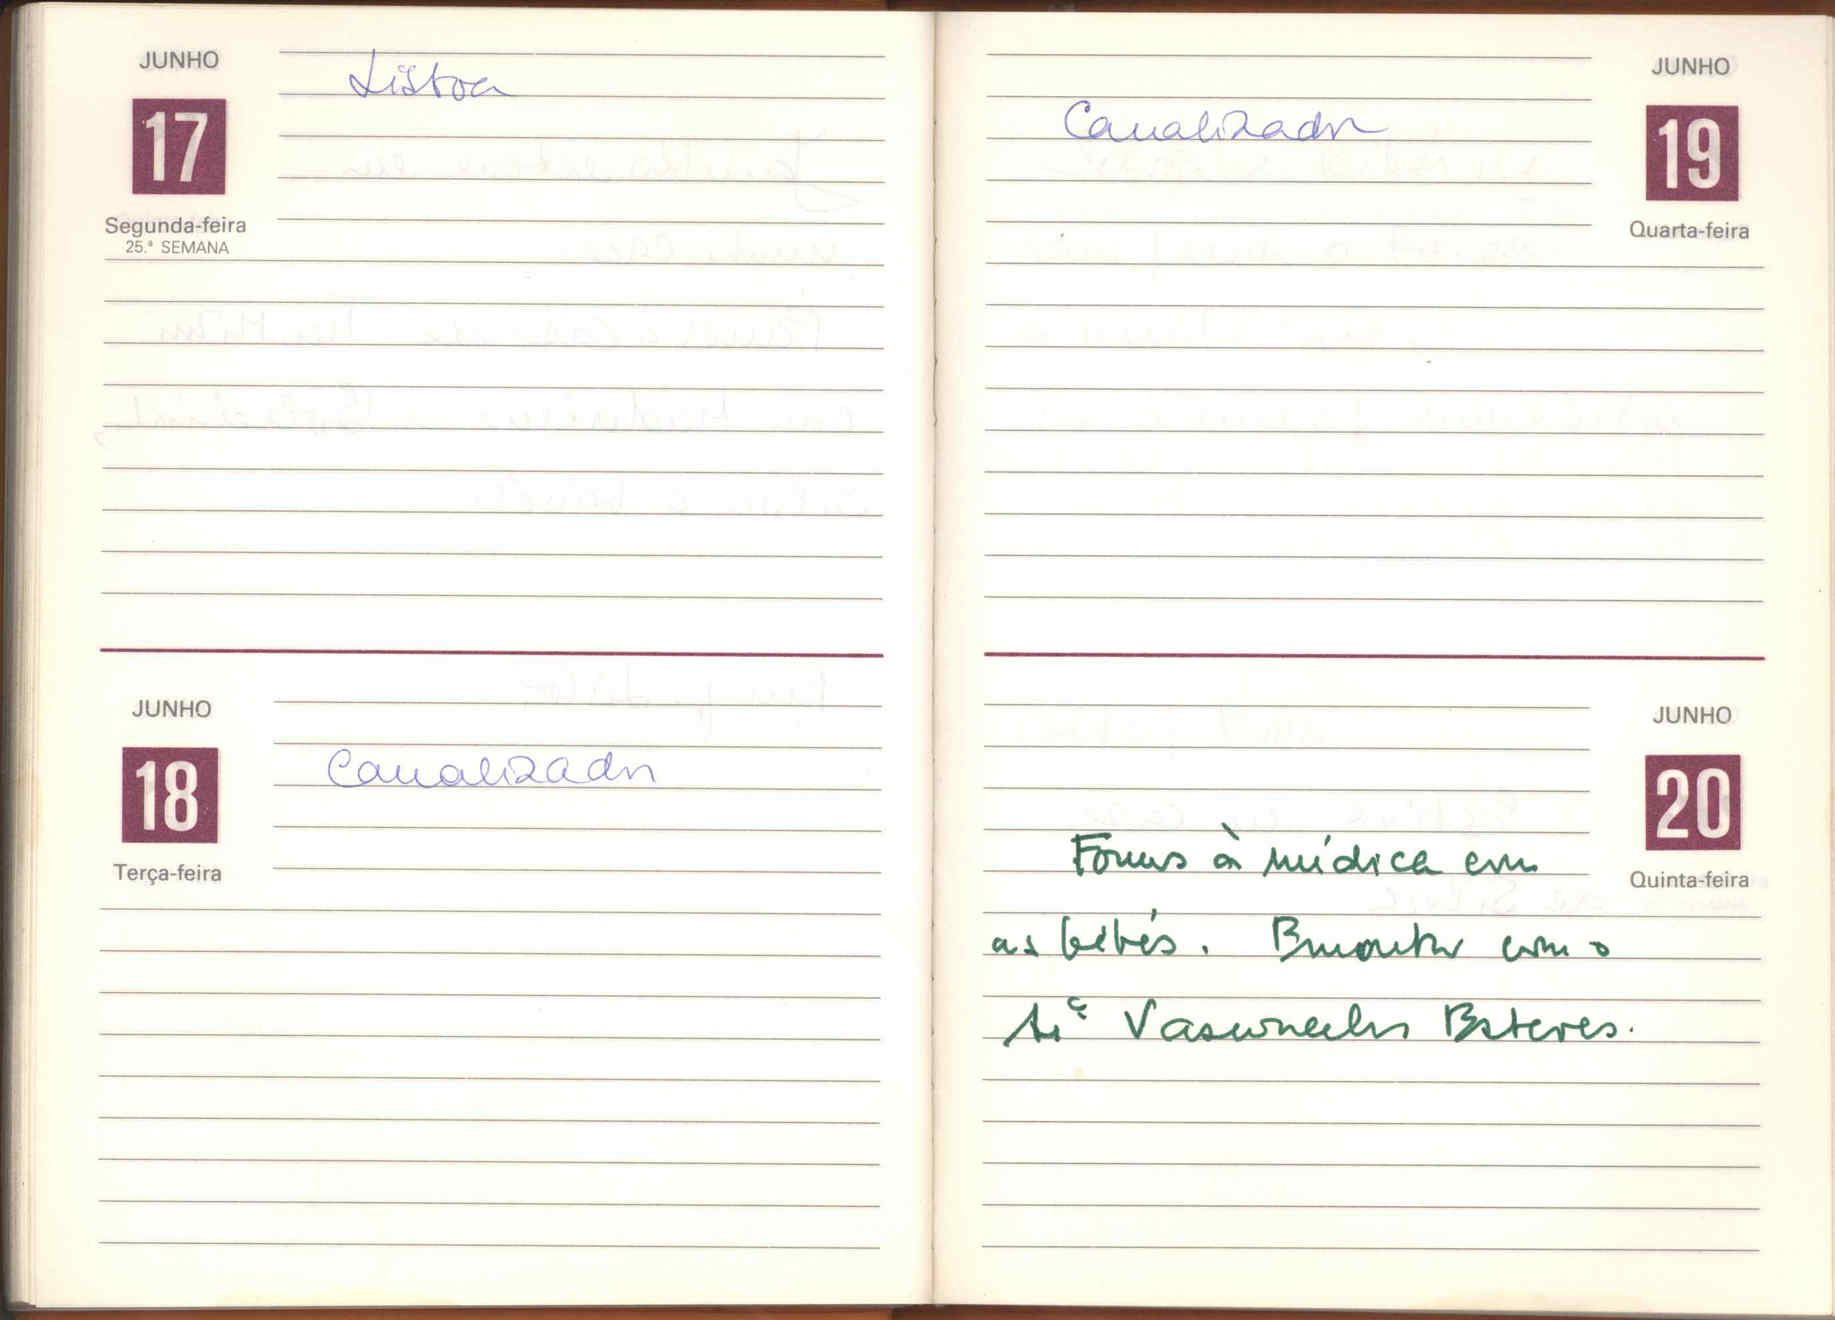 JUNHO
17
Segunda-feira
25.ª SEMANA
Lisboa
JUNHO
18
Terça-feira
Canalizador
JUNHO
19
Quarta-feira
Canalizador
JUNHO
20
Quinta-feira
Fomos à médica com
as bébés. com o
Vasconcelos Esteves.